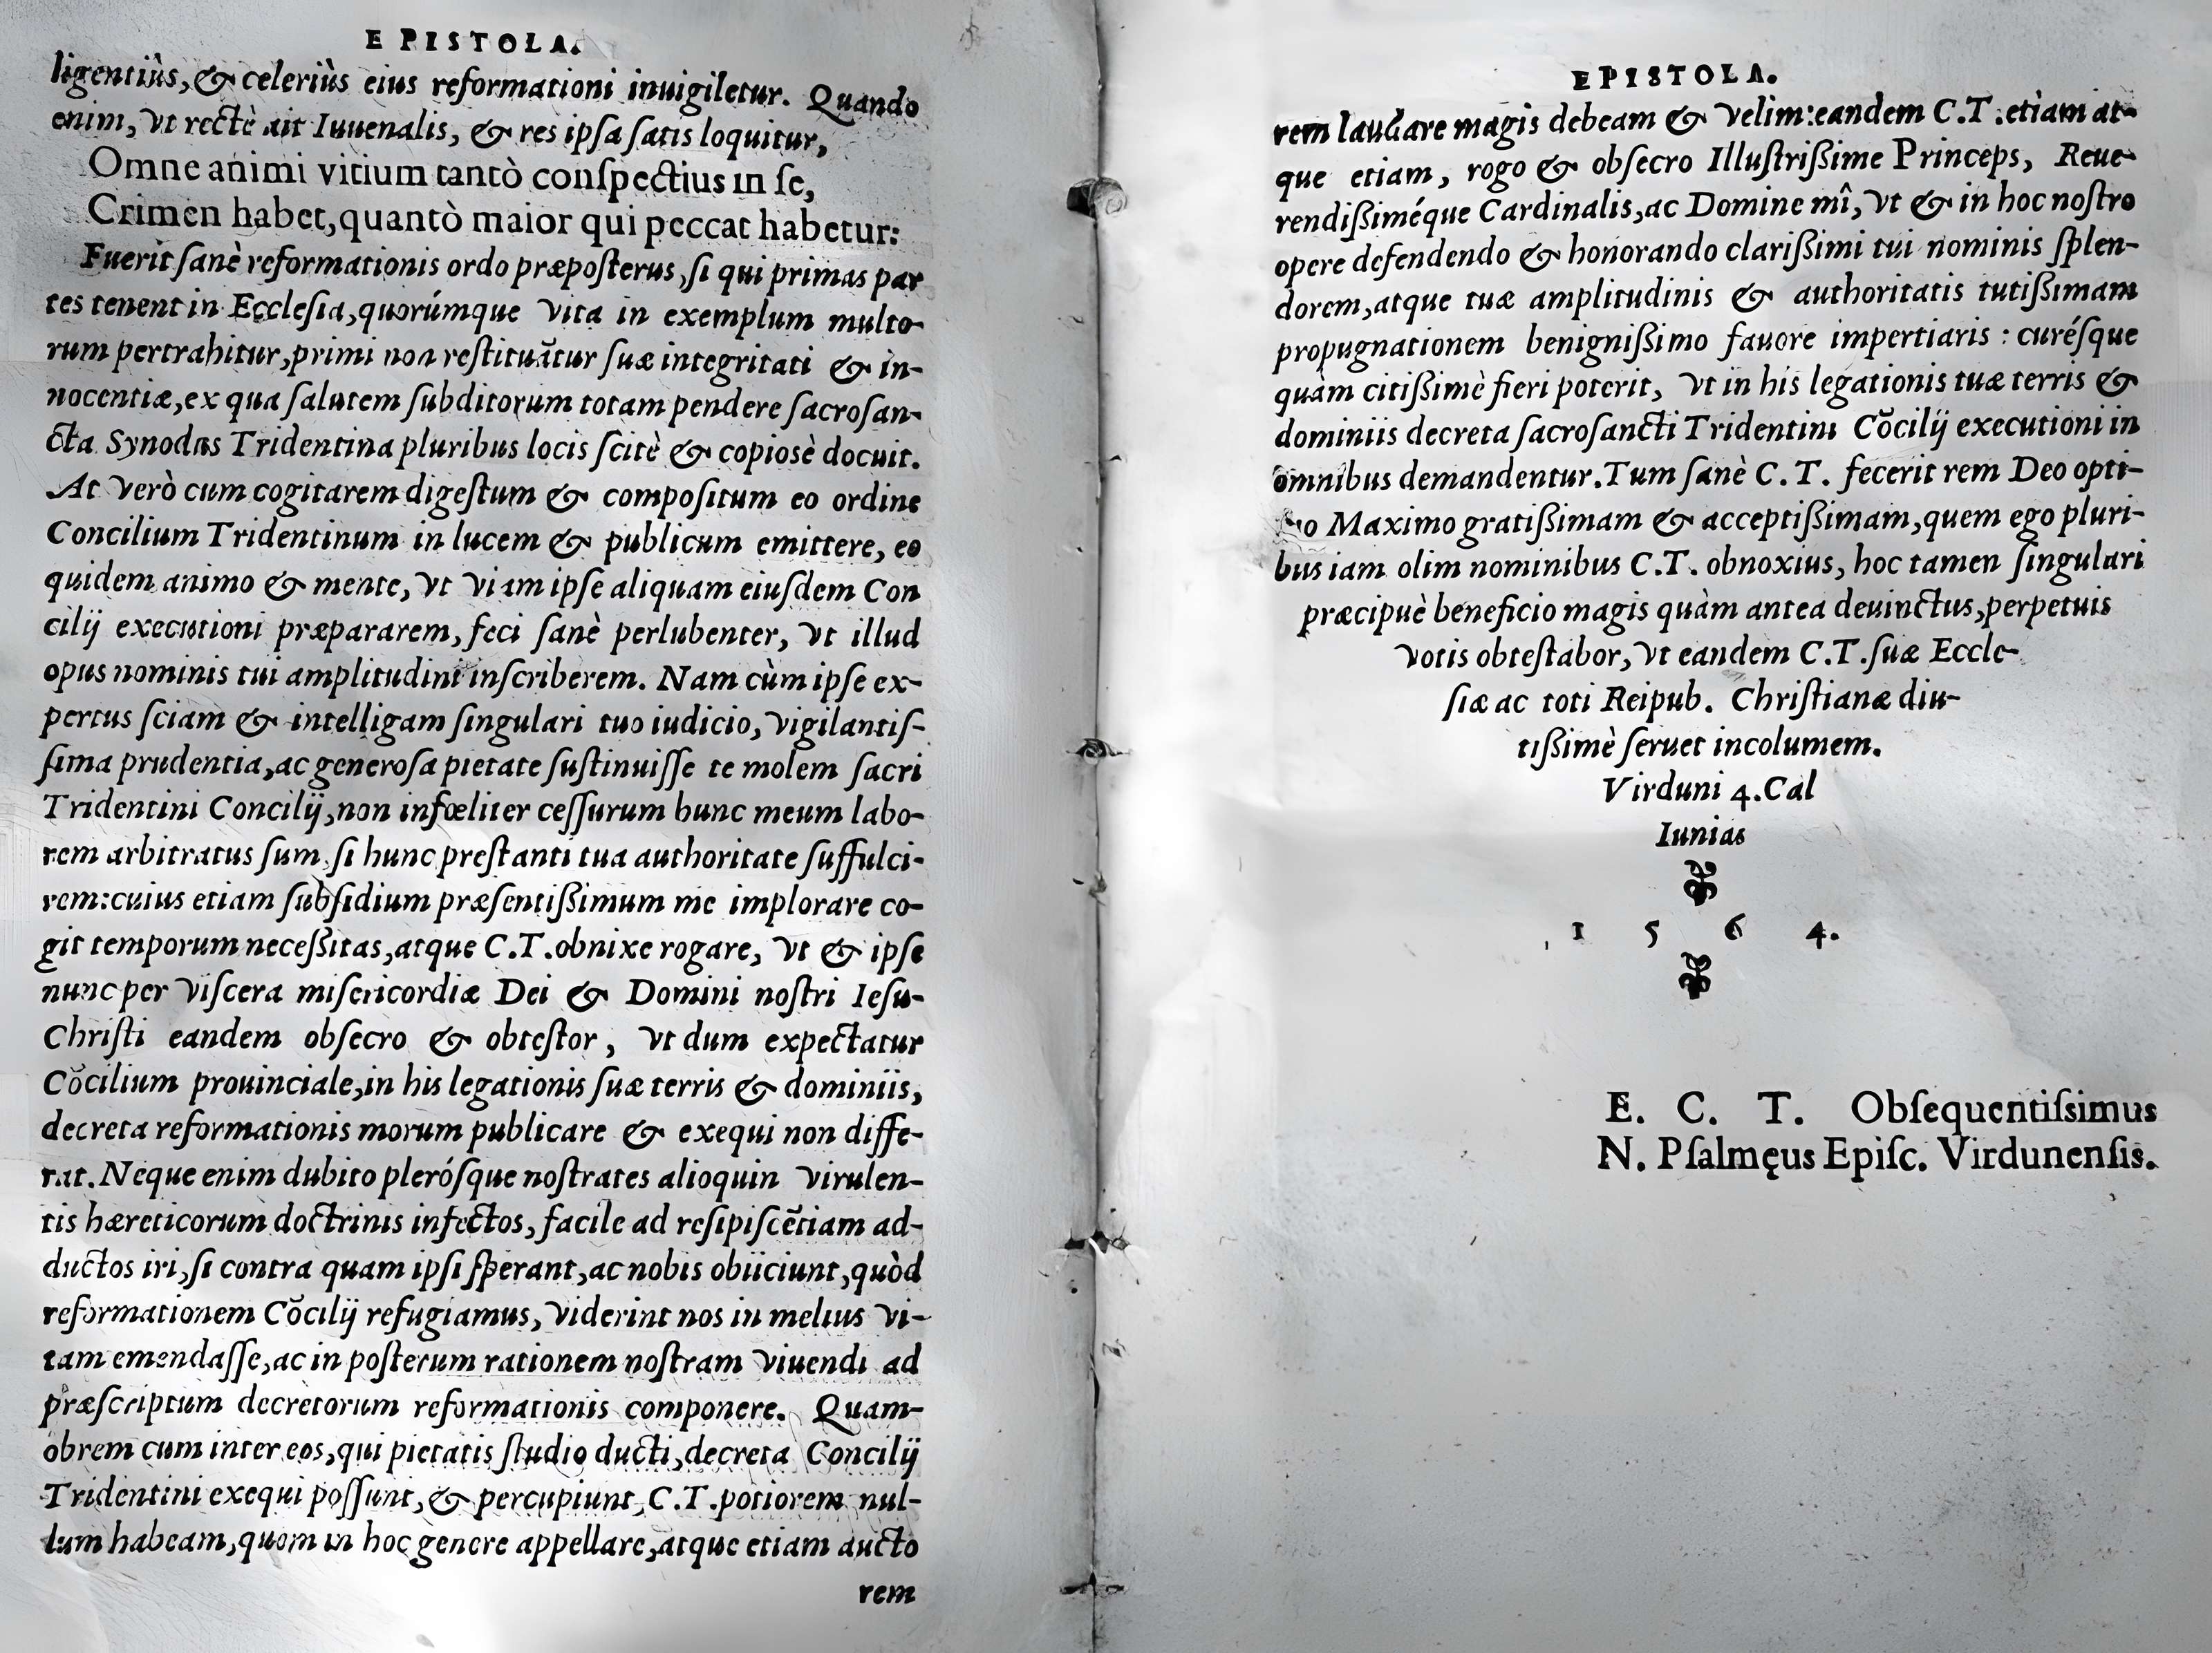 EPISTOLA.
ligentiùs, & celeriùs eius reformationi inuigiletur. Quando
enim, vt rectè ait Iuuenalis, & res ipſa ſatis loquitur,
Omne animi vitium tantò conſpectius in ſe,
Crimen habet, quantò maior qui peccat habetur:
Fuerit ſanè reformationis ordo præpoſterus, ſi qui primas par
tes tenent in Eccleſia, quorúmque vita in exemplum multo-
rum pertrahitur, primi non reſtituãtur ſuæ integritati & in-
nocentiæ, ex qua ſalutem ſubditorum totam pendere ſacroſan-
cta Synodus Tridentina pluribus locis ſcitè & copiosè docuit.
At verò cum cogitarem digeſtum & compoſitum eo ordine
Concilium Tridentinum in lucem & publicum emittere, eo
quidem animo & mente, vt viam ipſe aliquam eiuſdem Con
cilij executioni præpararem, feci ſanè perlubenter, vt illud
opus nominis tui amplitudini inſcriberem. Nam cùm ipſe ex-
pertus ſciam & intelligam ſingulari tuo iudicio, vigilantiſ-
ſima prudentia, ac generoſa pietate ſuſtinuiſſe te molem ſacri
Tridentini Concilij, non infœliter ceſſurum hunc meum labo-
rem arbitratus ſum, ſi hunc preſtanti tua authoritate ſuffulci-
rem: cuius etiam ſubſidium præſentiſſimum me implorare co-
git temporum neceſſitas, atque C.T. obnixe rogare, vt & ipſe
nunc per viſcera miſericordiæ Dei & Domini noſtri Ieſu-
Chriſti eandem obſecro & obteſtor, vt dum expectatur
Cõcilium prouinciale, in his legationis ſuæ terris & dominiis,
decreta reformationis morum publicare & exequi non diffe-
rat. Neque enim dubito pleróſque noſtrates alioquin virulen-
tis hæreticorum doctrinis infectos, facile ad reſipiſcẽtiam ad-
ductos iri, ſi contra quam ipſi ſperant, ac nobis obiiciunt, quòd
reformationem Cõcilij refugiamus, viderint nos in melius vi-
tam emendaſſe, ac in poſterum rationem noſtram viuendi ad
præſcriptum decretorum reformationis componere. Quam-
obrem cum inter eos, qui pietatis ſtudio ducti, decreta Concilij
Tridentini exequi poſſunt, & percupiunt, C.T. potiorem nul-
lum habeam, quem in hoc genere appellare, atque etiam aucto
rem
EPISTOLA.
rem laudare magis debeam & velim: eandem C.T. etiam at-
que etiam, rogo & obſecro Illuſtriſſime Princeps, Reue-
rendiſſiméque Cardinalis, ac Domine mî, vt & in hoc noſtro
opere defendendo & honorando clariſſimi tui nominis ſplen-
dorem, atque tuæ amplitudinis & authoritatis tutiſſimam
propugnationem benigniſſimo fauore impertiaris: curéſque
quàm citiſſimè fieri poterit, vt in his legationis tuæ terris &
dominiis decreta ſacroſancti Tridentini Cõcilij executioni in
omnibus demandentur. Tum ſanè C.T. fecerit rem Deo opti-
mo Maximo gratiſſimam & acceptiſſimam, quem ego pluri-
bus iam olim nominibus C.T. obnoxius, hoc tamen ſingulari
præcipuè beneficio magis quàm antea deuinctus, perpetuis
votis obteſtabor, vt eandem C.T. ſuæ Eccle-
ſiæ ac toti Reipub. Chriſtianæ diu-
tiſſimè ſeruet incolumem.
Virduni 4. Cal
Iunias
1 5 6 4.
E. C. T. Obſequentiſsimus
N. Pſalmęus Epiſc. Virdunenſis.